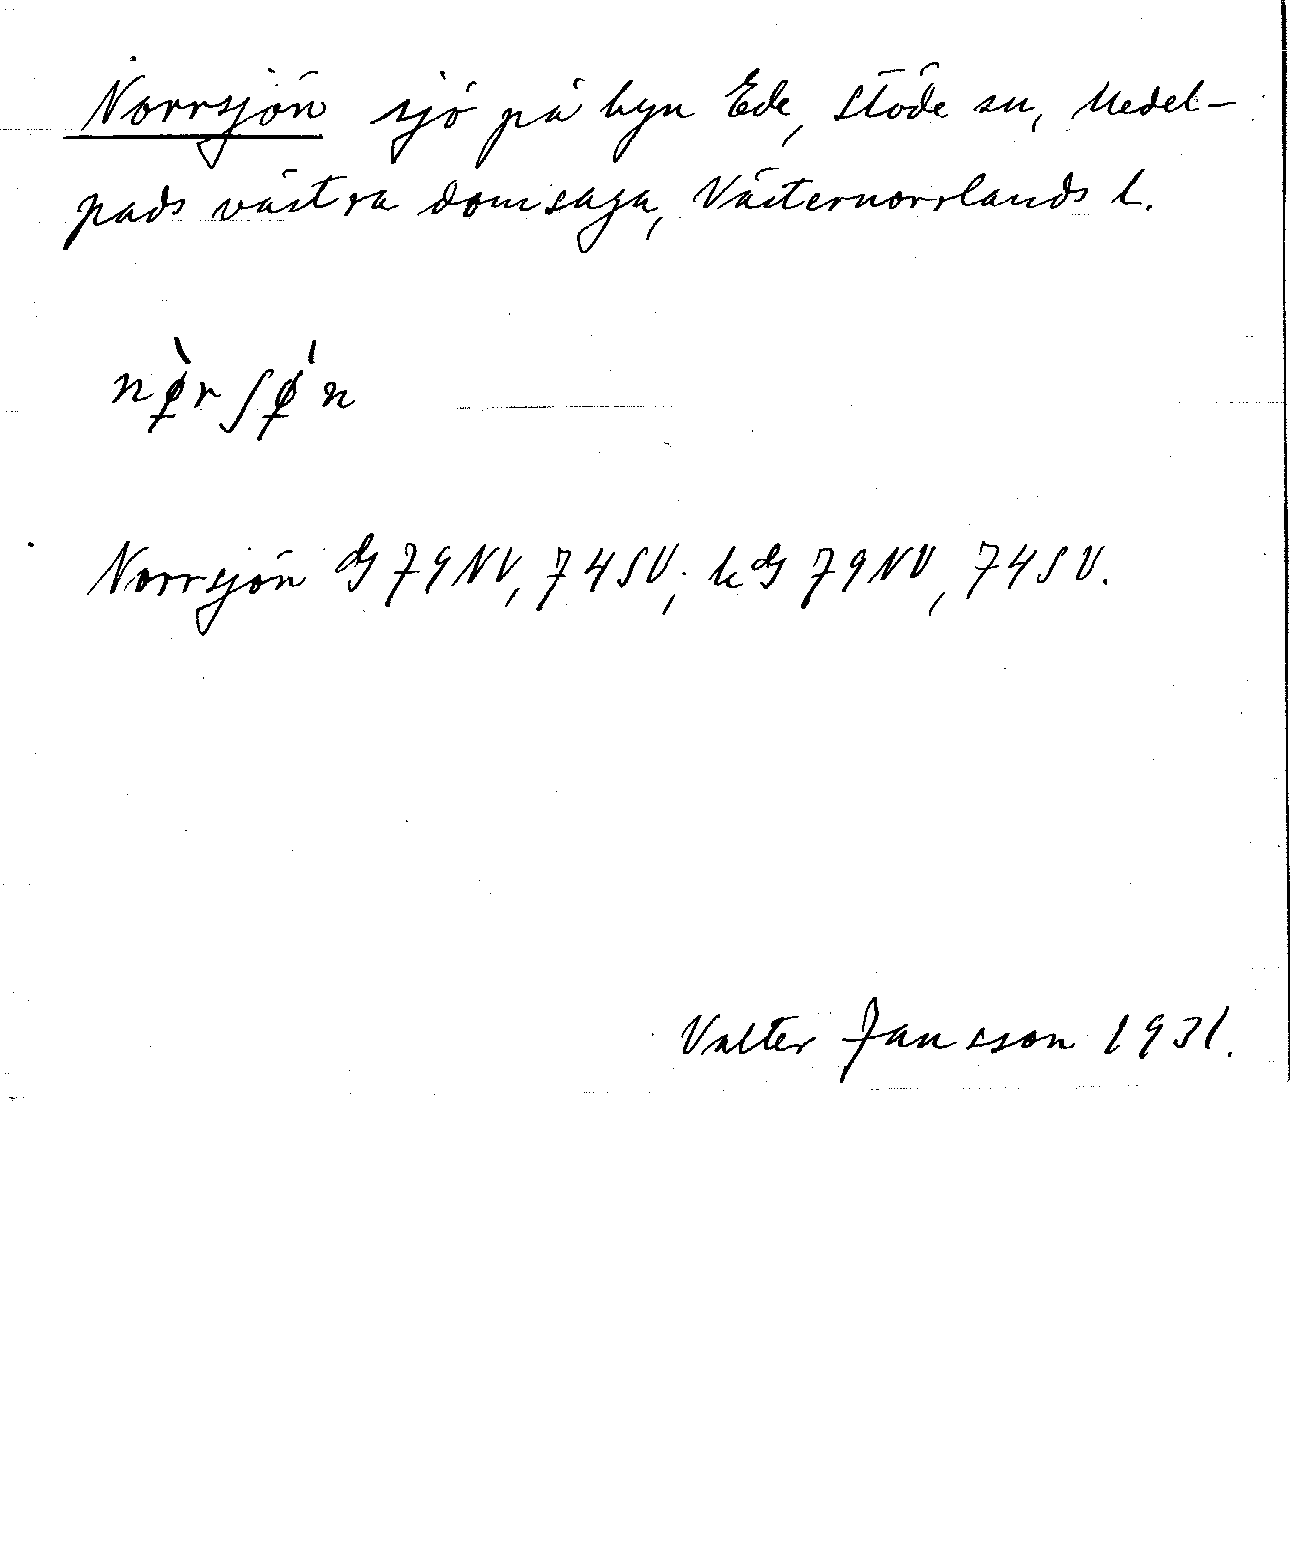 Norrsjön sjö på byn Ede, Stöde sn, Medel-
pads västra domsaga, Västernorrlands l.
nø̀rʃǿn
Norrsjön G 79NV, 74SV; kG 79NV, 74SV.
Valter Jansson 1931.